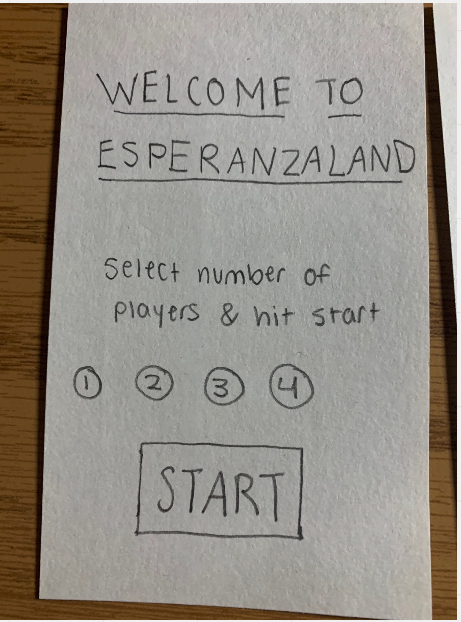 WELCOME TO
ESPERANZALAND
Select number of
players & hit start
1 2 3 4
START